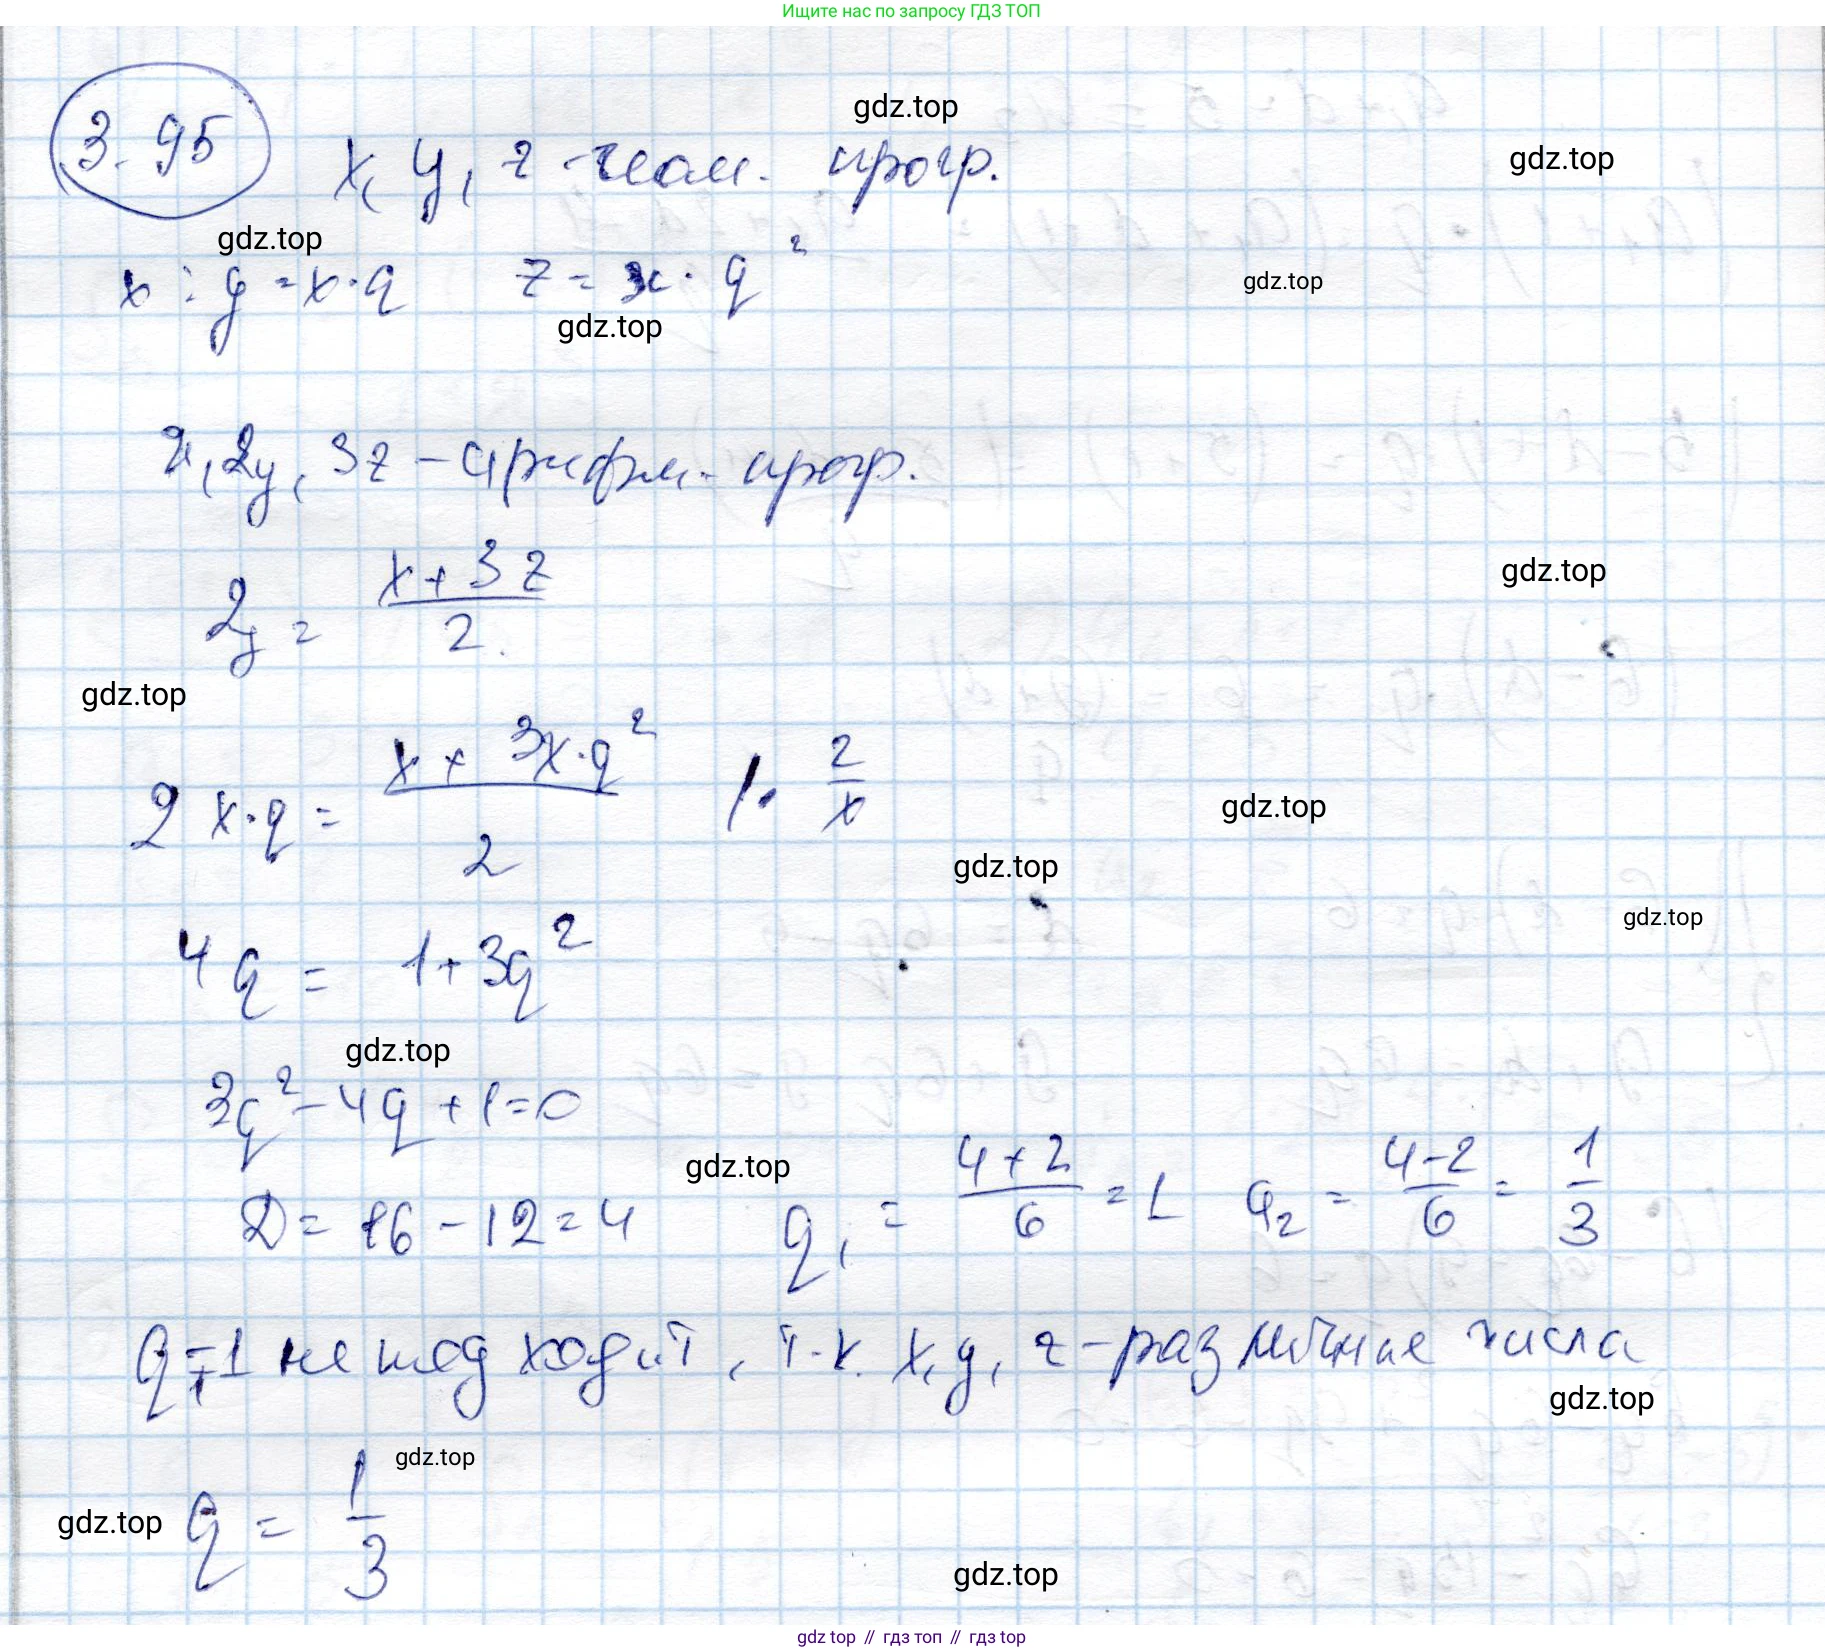 Ищите нас по запросу ГДЗ ТОП
3.95
x, y, z - геом. прогр.
gdz.top
gdz.top
gdz.top
x ; y = x · q z = x · q²
gdz.top
gdz.top
x, 2y, 3z - арифм. прогр.
2y = (x + 3z)/2
gdz.top
gdz.top
2x · q = (x + 3x · q²)/2 | · 2/x
gdz.top
gdz.top
4q = 1 + 3q²
gdz.top
gdz.top
3q² - 4q + 1 = 0
gdz.top
D = 16 - 12 = 4 q₁ = (4 + 2)/6 = 1 q₂ = (4 - 2)/6 = 1/3
q = 1 не подходит, т.к. x, y, z - различные числа
gdz.top
gdz.top
q = 1/3
gdz.top
gdz.top
gdz top // гдз топ // gdz top